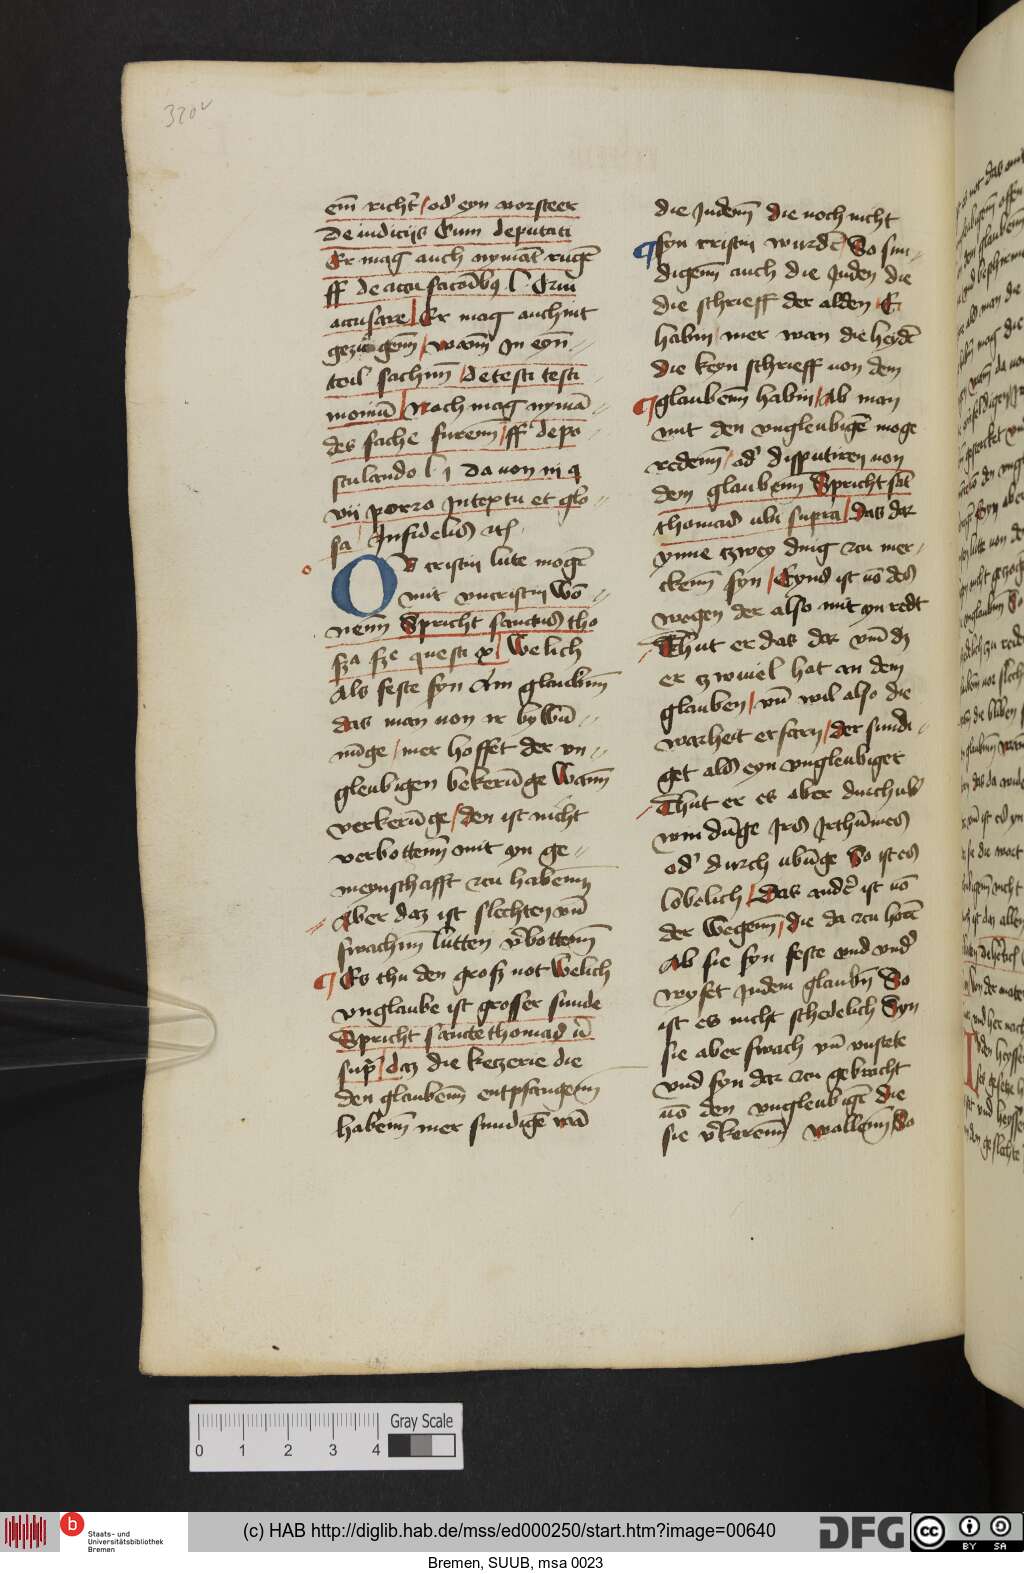 320v
em̄ richt̾ / od̾ eyn vorsteer
De iudicijs Cum deputati
Er mag auch nymāt rugē
ff de accusacōibꝫ l Crim̄
accusare / Er mag auch nit
gezügenn̄ / wann̄ In eyn̄
teil sachnn̄ / de testi testi
moniū / Noch mag nymā
des sache furenn̄ / ff de po
stulando l j Da von iij q
vij porro In textu et glo
sa Infidelis ꝛc
OB cristin lute mogē
mit vncristin wō
nenn̄ Spricht sanctus tho
sza sze questi x / Welich
Als feste syn Am glaubnn̄
das man von ir bywū
nūge / mer hoffet der vn
gleubigen bekerūge Wann̄
verkerūge / den ist nicht
verbottenn̄ mit yn ge
meynschafft zcu habenn̄
Aber daz ist slechten vn̄
swachnn̄ lūtten v̾bottenn̄
Es thu den groß not Welich
vnglaube ist grosser sunde
Spricht sancte thomas ū
sup̾ / daz die keczerie die
den glaubenn̄ entpfangenn̄
habenn̄ mer sundigē wā
die Judenn̄ die noch nicht
syn cristin wurdē So sun
digenn̄ auch die Juden die
die schrieff der alden E
habin / mer wan die heydē
die keyn schrieff von dem
glaubenn̄ habin / Ab man
mit den vngleubigē moge
redenn̄ / od̾ disputiren von
dem glaubenn Spricht sāt
thomas ubi supra / Das dar
ynne czwey ding zcu mer
ckenn̄ syn / Eyns ist vō des
wegen der also mit yn redt
Thut er das dar vm̄ dz
er czwiuel hat an dem
glauben / vn̄ wil also die
warheit erfarn / der sundi
get als eyn vngleubiget
Thut er es aber durch ub
windūge Irs Irthūmes
od̾ durch ubūge So ist es
lobelich / Das and̾e ist vō
der Wegenn̄ / die da zcu horē
Ab sie syn feste vnd vnd̾
wyset Indem glaubn̄ So
ist es nicht schedelich Syn
sie aber swach vn̄ vnstete
vnd syn dar zcu gebracht
vō den vngleubigē die
sie v̾kerenn̄ wollenn̄ So
0 1 2 3 4
Gray Scale
b
Staats- und
Universitätsbibliothek
Bremen
(c) HAB http://diglib.hab.de/mss/ed000250/start.htm?image=00640
DFG
cc
BY SA
Bremen, SUUB, msa 0023